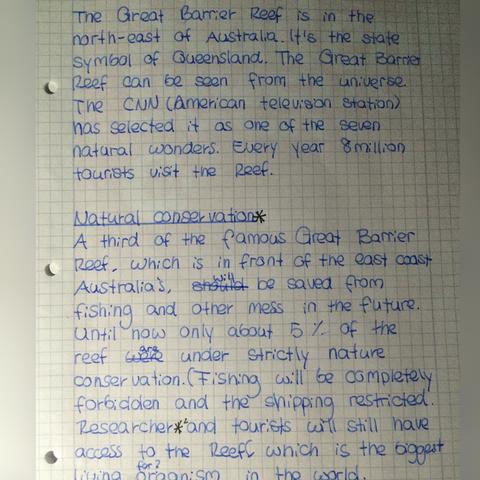 The Great Barrier Reef is in the
north-east of Australia. It's the state
symbol of Queensland. The Great Barrier
Reef can be seen from the universe.
The CNN (American television station)
has selected it as one of the seven
natural wonders. Every year 8 million
tourists visit the Reef.
Natural conservation*
A third of the famous Great Barrier
Reef, which is in front of the east coast
will
Australia's, should be saved from
fishing and other mess in the future.
Until now only about 5 % of the
are
reef were under strictly nature
conservation. (Fishing will be completely
forbidden and the shipping restricted.
Researcher* and tourists will still have
access to the Reef, which is the biggest
for?
living organism in the world.